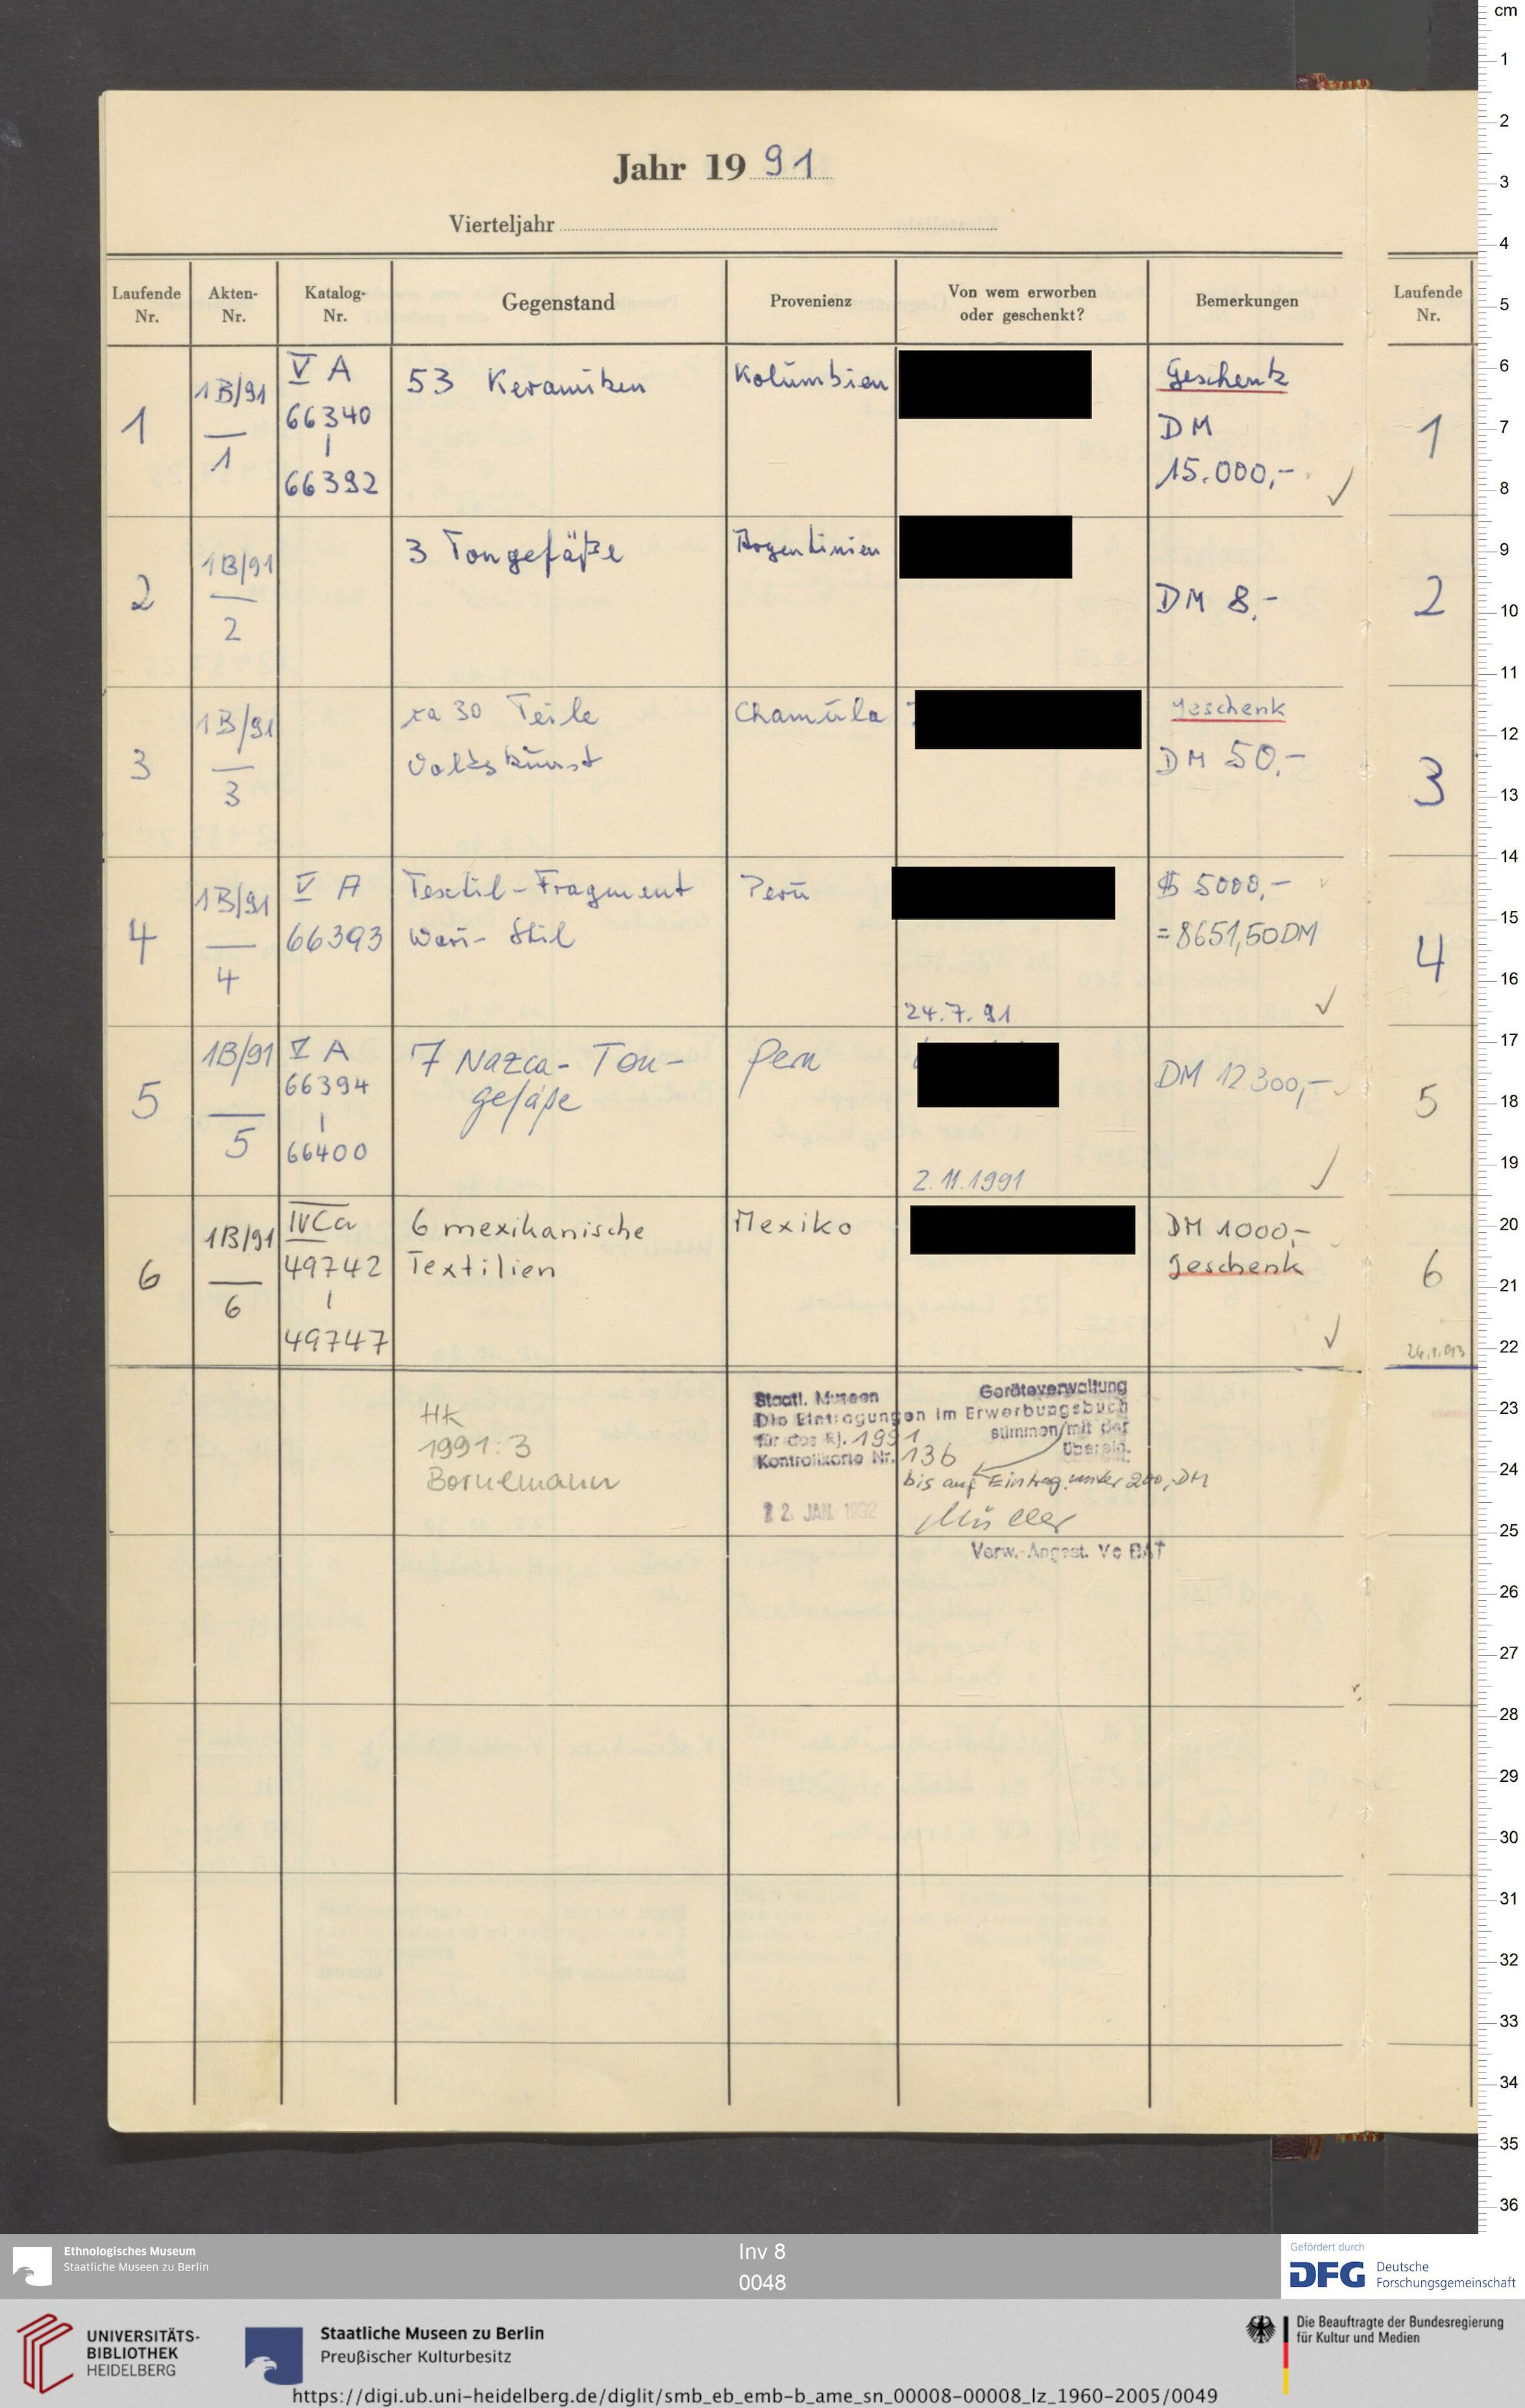 Jahr 1991
Vierteljahr
Laufende Nr.
Akten-Nr.
Katalog-Nr.
Gegenstand
Provenienz
Von wem erworben oder geschenkt?
Bemerkungen
Laufende Nr.
1
1B/91
1
V A
66340
|
66392
53 Keramiken
Kolumbien
Geschenk
DM
15.000,-
✓
1
2
1B/91
2
3 Tongefäße
Argentinien
DM 8,-
2
3
1B/91
3
ca 30 Teile
Volkskunst
Chamula
Geschenk
DM 50,-
3
4
1B/91
4
V A
66393
Textil-Fragment
Wari-Stil
Peru
24.7.91
$ 5000,-
=8651,50DM
✓
4
5
1B/91
5
V A
66394
|
66400
7 Nazca-Ton-
gefäße
Peru
2.11.1991
DM 12300,-
✓
5
6
1B/91
6
IV Ca
49742
|
49747
6 mexikanische
Textilien
Mexiko
DM 1000,-
Geschenk
✓
6
HK
1991:3
Bornemann
Staatl. Museen Geräteverwaltung
Die Eintragungen im Erwerbungsbuch
für das Rj. 1991 stimmen mit der
Kontrollkarte Nr. 136 überein.
bis auf Eintrag. unter 200,-DM
22. JAN. 1992
Müller
Verw.-Angest. Vc BAT
cm
1
2
3
4
5
6
7
8
9
10
11
12
13
14
15
16
17
18
19
20
21
22
23
24
25
26
27
28
29
30
31
32
33
34
35
36
Ethnologisches Museum
Staatliche Museen zu Berlin
Inv 8
0048
Gefördert durch
DFG Deutsche
Forschungsgemeinschaft
UNIVERSITÄTS-
BIBLIOTHEK
HEIDELBERG
Staatliche Museen zu Berlin
Preußischer Kulturbesitz
Die Beauftragte der Bundesregierung
für Kultur und Medien
https://digi.ub.uni-heidelberg.de/diglit/smb_eb_emb-b_ame_sn_00008-00008_lz_1960-2005/0049